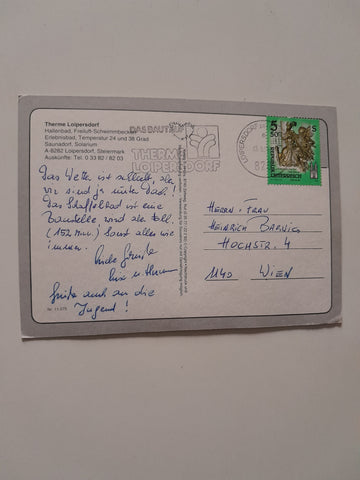 Therme Loipersdorf
Hallenbad, Freiluft-Schwimmbecken
Erlebnisbad, Temperatur 24 und 36 Grad
Saunadorf, Solarium
A-8282 Loipersdorf, Steiermark
Auskünfte: Tel. 0 33 82 / 82 03
THERME
LOIPERSDORF
LOIPERSDORF
5 S
50
ÖSTERREICH
Das Wetter ist schlecht, aber
wir sind ja unter Dach!
Das Schaffelbad ist eine
Baustelle wird aber toll.
(152 Mill.) Sonst alles wie
immer.
Liebe Grüße
Grüße auch an die
Jugend!
HERRN + FRAU
HEINRICH
HOCHSTR. 4
1140 WIEN
Nr. 11 075